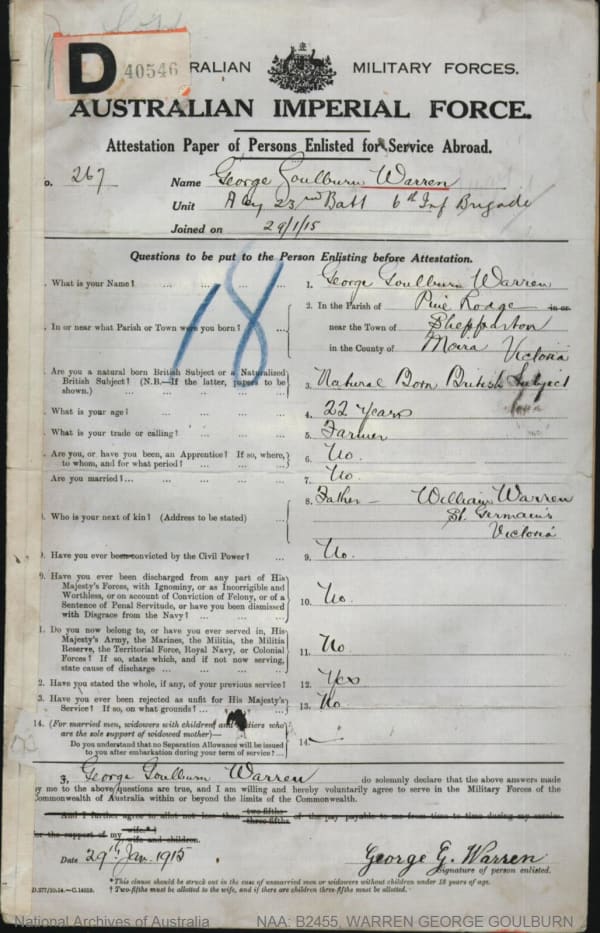 D 40546
RALIAN MILITARY FORCES.
AUSTRALIAN IMPERIAL FORCE.
Attestation Paper of Persons Enlisted for Service Abroad.
o. 267 Name George Goulburn Warren
Unit A Coy 23rd Batt 6th Inf Brigade
Joined on 29/1/15
Questions to be put to the Person Enlisting before Attestation.
18
. What is your Name? ... ... ... ... 1. George Goulburn Warren
. In or near what Parish or Town were you born? ... 2. In the Parish of Pine Lodge in or
near the Town of Shepparton
in the County of Moira Victoria
. Are you a natural born British Subject or a Naturalized
British Subject? (N.B.—If the latter, papers to be
shown.) ... ... ... ... 3. Natural Born British Subject
. What is your age? ... ... ... ... 4. 22 Years
. What is your trade or calling? ... ... ... 5. Farmer
. Are you, or have you been, an Apprentice? If so, where,
to whom, and for what period? ... ... ... 6. No.
. Are you married? ... ... ... ... 7. No.
. Who is your next of kin? (Address to be stated) ... 8. Father – William Warren
St. Germains
Victoria
. Have you ever been convicted by the Civil Power? ... 9. No.
0. Have you ever been discharged from any part of His
Majesty's Forces, with Ignominy, or as Incorrigible and
Worthless, or on account of Conviction of Felony, or of a
Sentence of Penal Servitude, or have you been dismissed
with Disgrace from the Navy? ... ... ... 10. No.
1. Do you now belong to, or have you ever served in, His
Majesty's Army, the Marines, the Militia, the Militia
Reserve, the Territorial Force, Royal Navy, or Colonial
Forces? If so, state which, and if not now serving,
state cause of discharge ... ... ... 11. No
2. Have you stated the whole, if any, of your previous service? 12. Yes
3. Have you ever been rejected as unfit for His Majesty's
Service? If so, on what grounds? ... ... 13. No
14. (For married men, widowers with children, and soldiers who
are the sole support of widowed mother)—
Do you understand that no Separation Allowance will be issued
to you after embarkation during your term of service? ... 14. —
I, George Goulburn Warren do solemnly declare that the above answers made
by me to the above questions are true, and I am willing and hereby voluntarily agree to serve in the Military Forces of the
Commonwealth of Australia within or beyond the limits of the Commonwealth.
And I further agree to allot not less than two-fifths
three-fifths of the pay payable to me from time to time during my service
for the support of my wife.*†
wife and children.
Date 29th Jan. 1915 George G. Warren
Signature of person enlisted.
* This clause should be struck out in the case of unmarried men or widowers without children under 18 years of age.
D.277/10.14.—C.14559. † Two-fifths must be allotted to the wife, and if there are children three-fifths must be allotted.
National Archives of Australia NAA: B2455, WARREN GEORGE GOULBURN